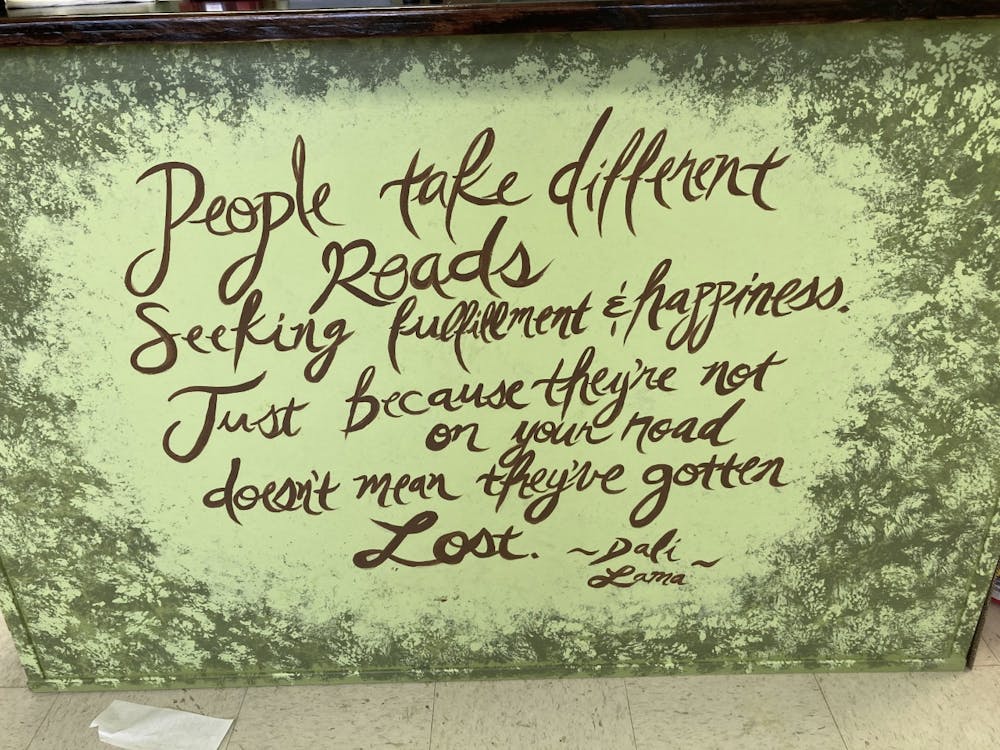 People take different
Roads
Seeking fulfillment & happiness.
Just because they're not
on your road
doesn't mean they've gotten
Lost.
~Dali ~
Lama